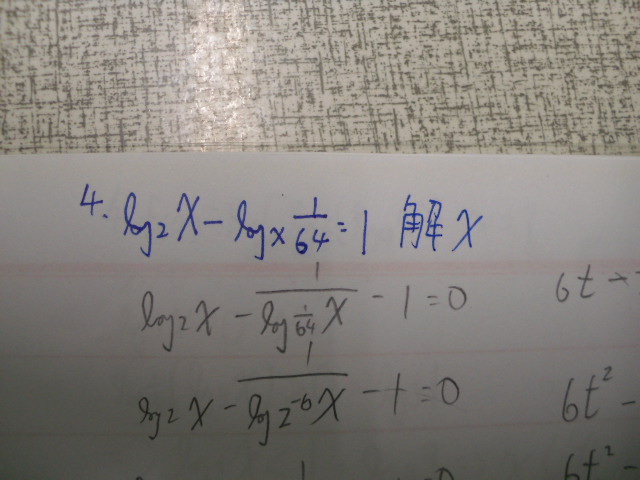 4. log₂x - logₓ 1/64 = 1 解 x
log₂x - 1/(log_{1/64} x) - 1 = 0
6t
log₂x - 1/(log_{2^{-6}} x) - 1 = 0
6t² -
6t² -